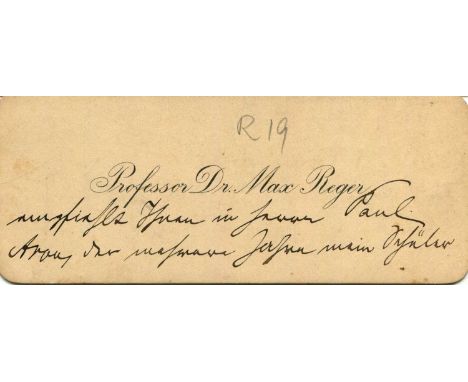 R 19
Professor Dr. Max Reger
empfiehlt Ihnen in Herrn Paul
Aron, der mehrere Jahre mein Schüler